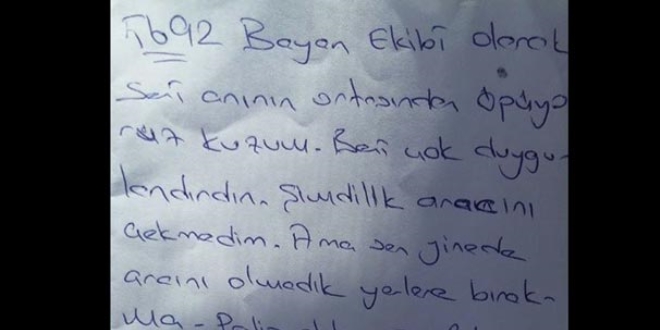 5692 Bayan Ekibi olarak
Seni anının ortasından öpüyo
ruz kuzum. Beni çok duygu-
landırdın. Şimdilik aracını
çekmedim. Ama sen yinede
aracını olmadık yerlere bırak-
ma -